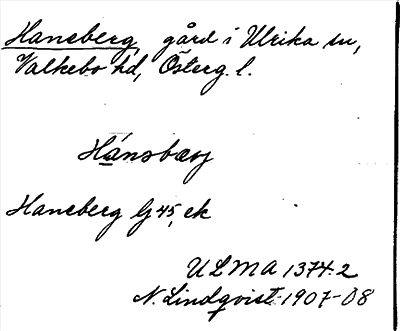 Haneberg, gård i Ulrika sn,
Valkebo hd, Österg. l.
Hánsbærj
Haneberg Gj 45, ek
ULMA 1374:2
N. Lindqvist 1907-08